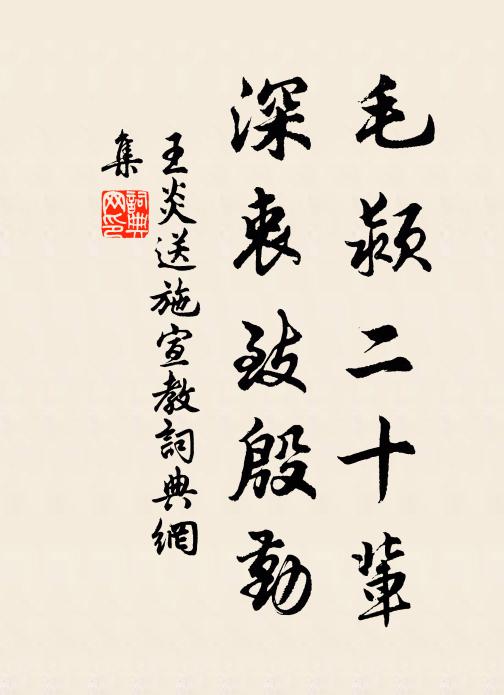 毛颖二十輩
深衷致殷勤
王炎送施宣教詞典網
集
詞典
网印